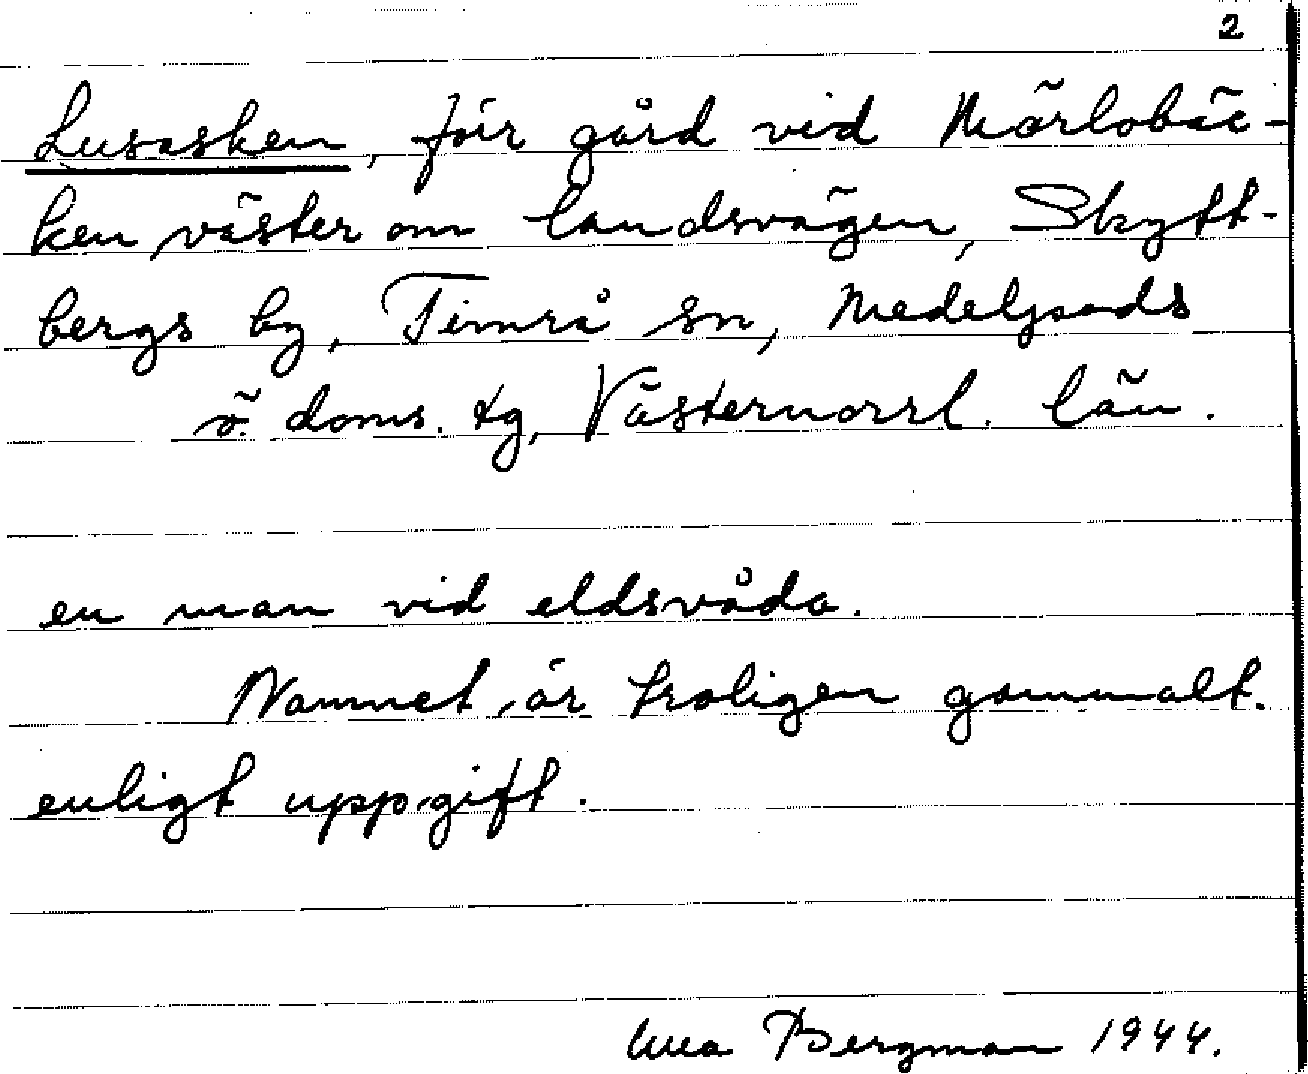 2
Lusasken, för gård vid Märlobäc-
ken väster om landsvägen, Skytt-
bergs by, Timrå sn, Medelpads
ö. doms. tg, Västernorrl. län.
en man vid eldsvåda.
Namnet är troligen gammalt.
enligt uppgift.
Bergman 1944.